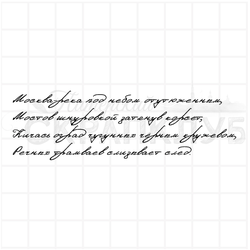 Москва река под небом отутюженным,
Мостов шнуровкой затянув корсет,
Кичась оград чугунных чёрным кружевом,
Речных трамваев слизывает след.